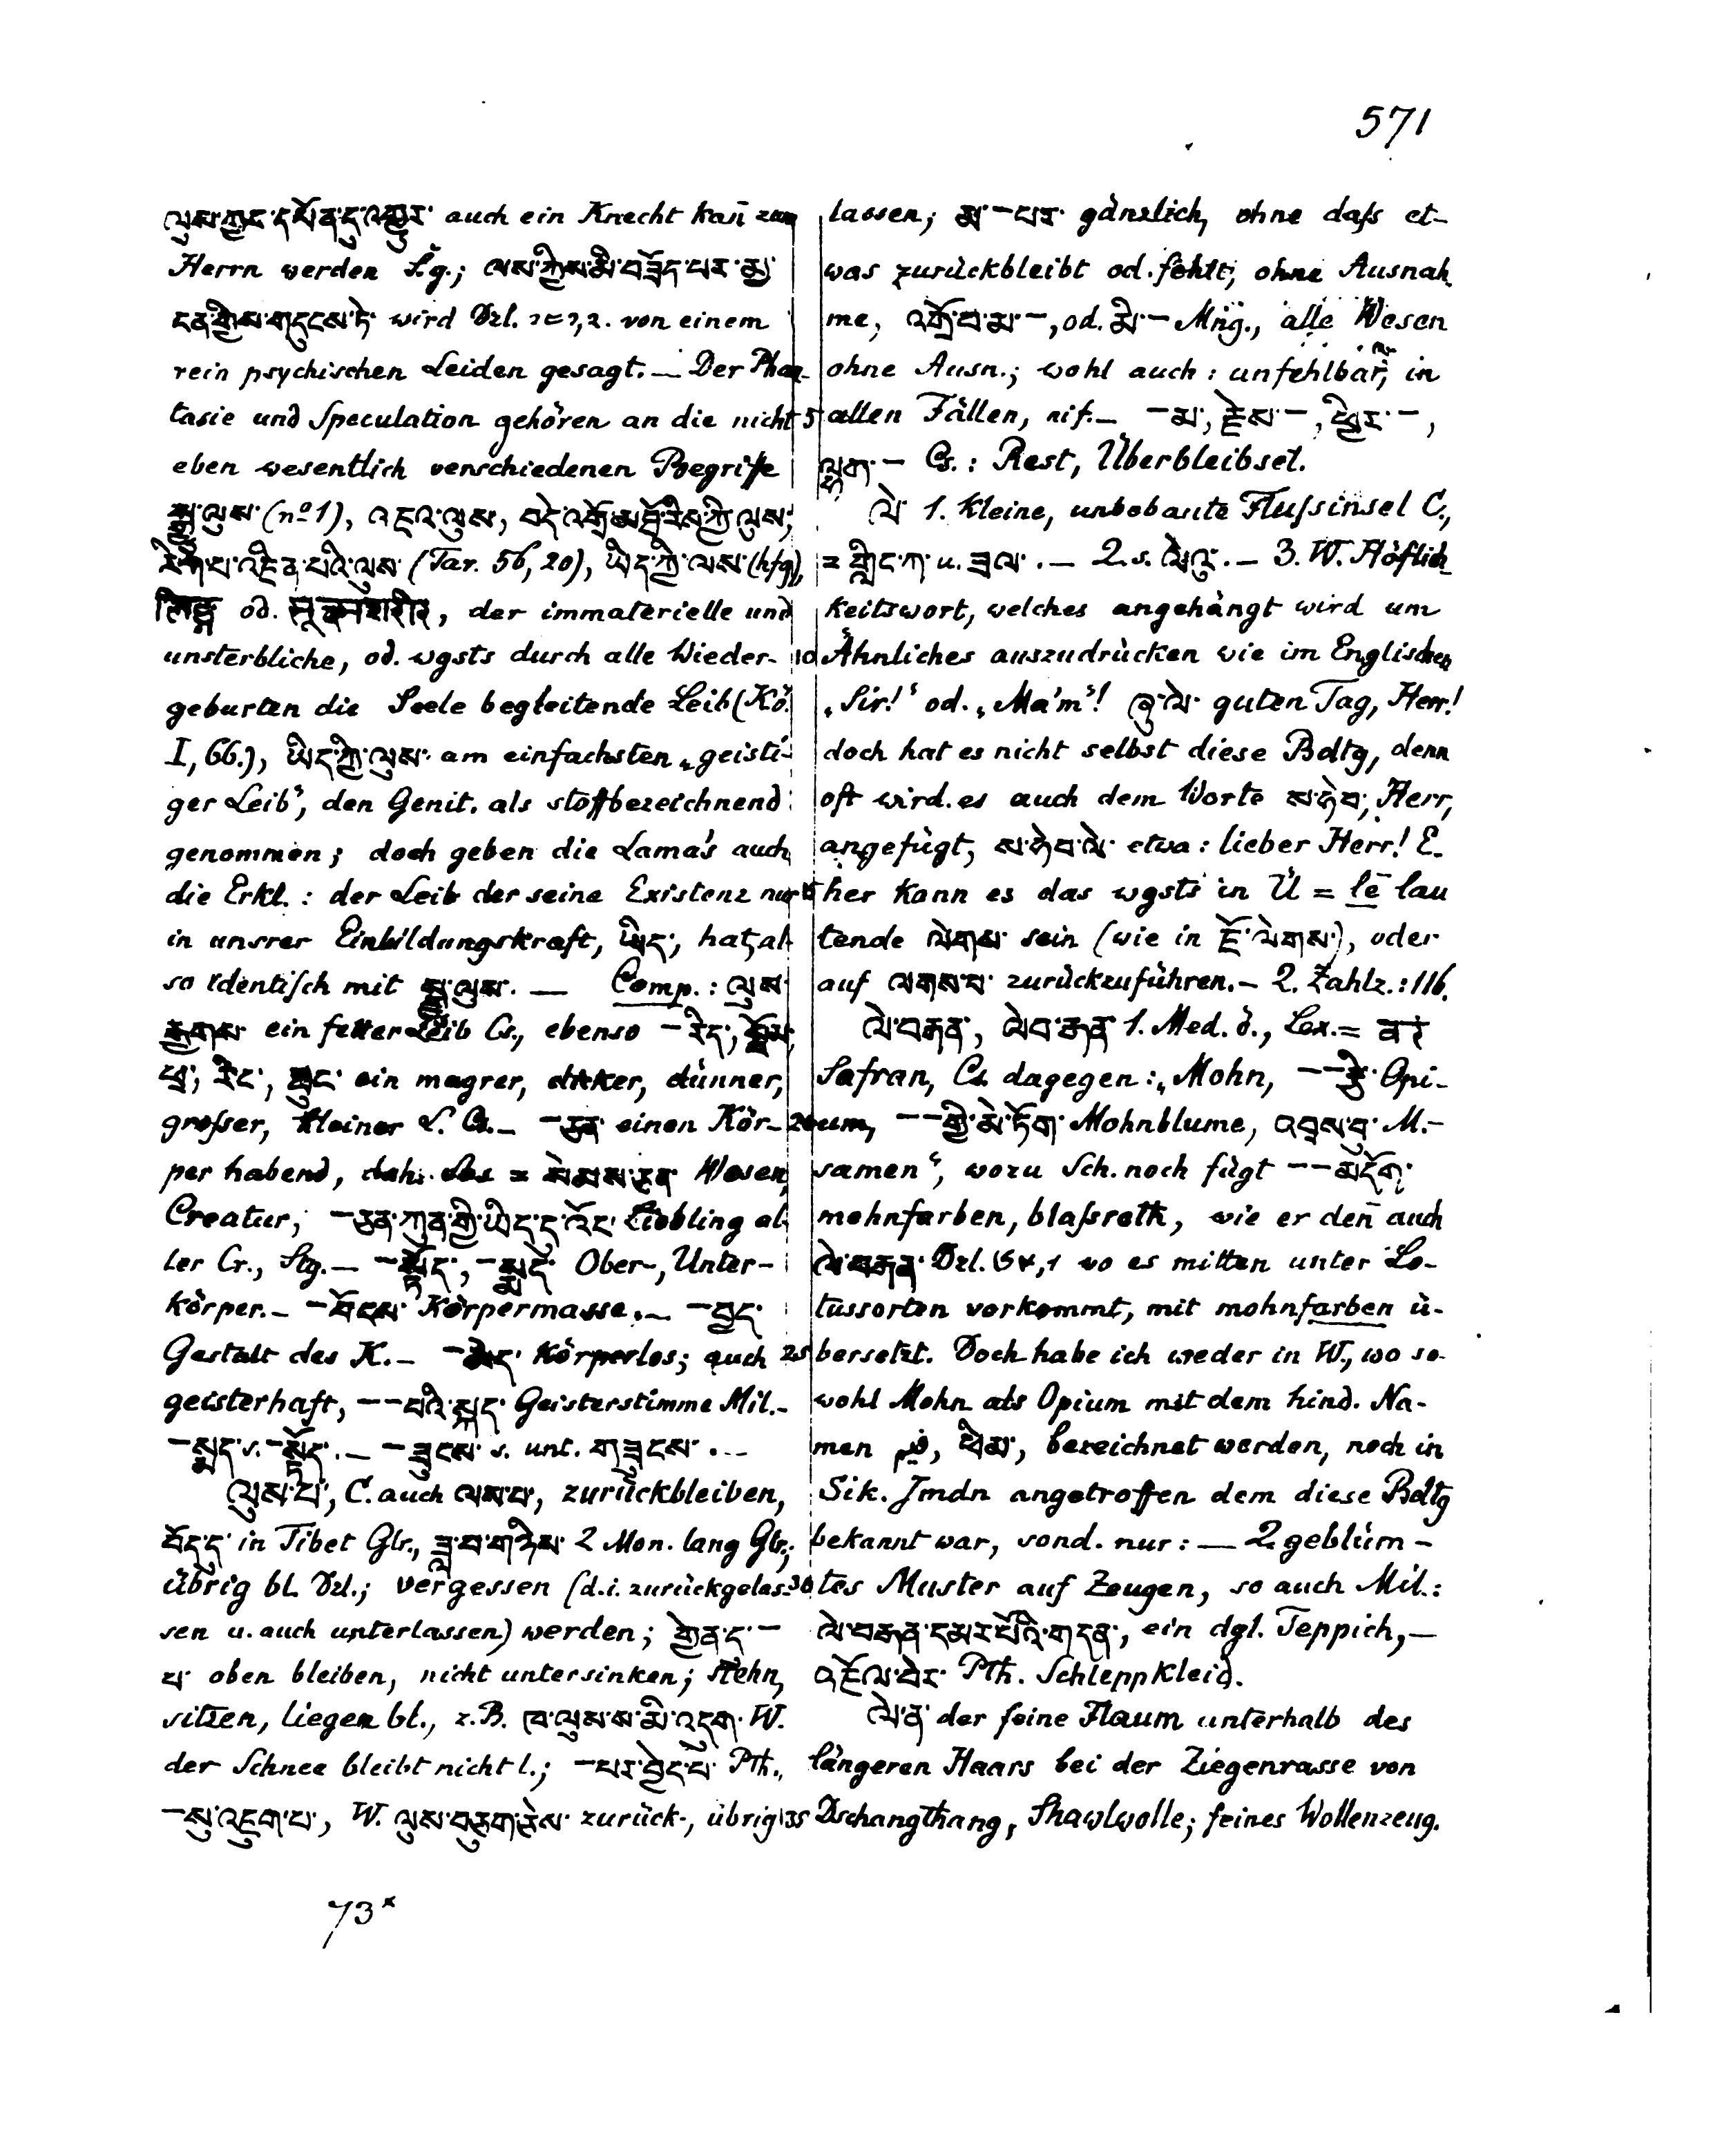 571
ལུས་ཀྱང་དཔོན་དུ་འགྱུར་ auch ein Knecht kan̄ zum
Herrn werden S.g.; ལས་ཀྱིས་མི་བཟོད་པར་མྱ་
ངན་གྱིས་གདུངས་ཏེ་ wird Dzl. von einem
rein psychischen Leiden gesagt. — Der Phan-
tasie und Speculation gehören an die nicht
eben wesentlich verschiedenen Begriffe
སྒྱུ་ལུས་ (nº 1), འཇའ་ལུས་, བདེ་འགྲོ་མཐོ་རིས་ཀྱི་ལུས་,
རིག་པ་འཛིན་པའི་ལུས་ (Tar. 56, 20), ཡིད་ཀྱི་ལུས་ (hfg),
लिङ्ग od. सूक्ष्मशरीर, der immaterielle und
unsterbliche, od. wgsts durch alle Wieder-
geburten die Seele begleitende Leib (Kö.
I, 66.), ཡིད་ཀྱི་ལུས་ am einfachsten „geisti-
ger Leib“, den Genit. als stoffbezeichnend
genommen; doch geben die Lama's auch
die Erkl.: der Leib der seine Existenz nur
in unsrer Einbildungskraft, ཡིད་, hat, al-
so identisch mit སྒྱུ་ལུས་. — Comp.: ལུས་
རྒྱགས་ ein fetter Leib Cs., ebenso — རིད་, སྦོམ་,
ཕྲ་, རིང་, ཐུང་ ein magrer, dicker, dünner,
grosser, kleiner L. Cs. — — ཅན་ einen Kör-
per habend, dah. Lus = སེམས་ཅན་ Wesen,
Creatur, — ཅན་ཀུན་གྱི་ཡིད་དུ་འོང་ Liebling al-
ler Cr., Stg. — — སྟོད་, — སྨད་ Ober-, Unter-
körper. — — བོངས་ Körpermasse. — — བྱད་
Gestalt des K. — — མེད་ körperlos; auch
geisterhaft, — — པའི་སྐད་ Geisterstimme Mil. —
— སྨད་ s. — སྟོད་. — — ཟུངས་ s. unt. གཟུངས་. —
ལུས་པ་, C. auch ལས་པ་, zurückbleiben,
བོད་དུ་ in Tibet Glr., ཟླ་བ་གཉིས་ 2 Mon. lang Glr.;
übrig bl. Dzl.; vergessen (d.i. zurückgelas-
sen u. auch unterlassen) werden; གྱེན་དུ་ —
པ་ oben bleiben, nicht untersinken; stehn,
sitzen, liegen bl., z.B. ཁ་ལུས་ས་མི་འདུག་ W.
der Schnee bleibt nicht l.; — པར་བྱེད་པ་ Pth.,
— སུ་འཇུག་པ་, W. ལུས་བཅུག་ཅེས་ zurück-, übrig
lassen; མ་ — པར་ gänzlich, ohne daſs et-
was zurückbleibt od. fehlt, ohne Ausnah-
me, འགྲོ་བ་མ་ —, od. མི་ — Mṅg., alle Wesen
ohne Ausn.; wohl auch: unfehlbar, in
allen Fällen, nif. — — མ་, རྗེས་ —, ཕྱིར་ —,
ལྷག་ — Cs.: Rest, Überbleibsel.
ལེ་ 1. kleine, unbebaute Fluſsinsel C.,
= གླིང་ཀ་ u. ཟལ་. — 2. s. ལེའུ་. — 3. W. Höflich-
keitswort, welches angehängt wird um
Ähnliches auszudrücken wie im Englischen
„Sir!“ od. „Ma'm“! ཇུ་ལེ་ guten Tag, Herr!
doch hat es nicht selbst diese Bdtg, denn
oft wird es auch dem Worte ས་ཧེབ་, Herr,
angefügt, ས་ཧེབ་ལེ་ etwa: lieber Herr! E-
her kann es das wgsts in Ü = lē lau
tende ལེགས་ sein (wie in ཇོ་ལེགས་), oder
auf ལགས་པ་ zurückzuführen. — 2. Zahlz.: 116.
ལེ་བརྒན་, ལེབ་རྒན་ 1. Med. ö., Lex. =
Safran, Cs. dagegen: „Mohn, — — རྩི་ Opi-
um, — — གྱི་མེ་ཏོག་ Mohnblume, འབྲས་བུ་ M.-
samen“, wozu Sch. noch fügt — — མདོག་
mohnfarben, blaſsroth, wie er den̄ auch
ལེ་བརྒན་ Dzl. wo es mitten unter Lo-
tussorten vorkommt, mit mohnfarben ü-
bersetzt. Doch habe ich weder in W., wo so-
wohl Mohn als Opium mit dem hind. Na-
men ཕིམ་, bezeichnet werden, noch in
Sik. Jmdn angetroffen dem diese Bdtg
bekannt war, sond. nur: — 2. geblüm-
tes Muster auf Zeugen, so auch Mil.:
ལེ་བརྒན་དམར་པོའི་གདན་, ein dgl. Teppich, —
འཇོལ་བེར་ Pth. Schleppkleid.
ལེ་ན་ der feine Flaum unterhalb des
längeren Haars bei der Ziegenrasse von
Dschangthang, Shawlwolle; feines Wollenzeug.
73*